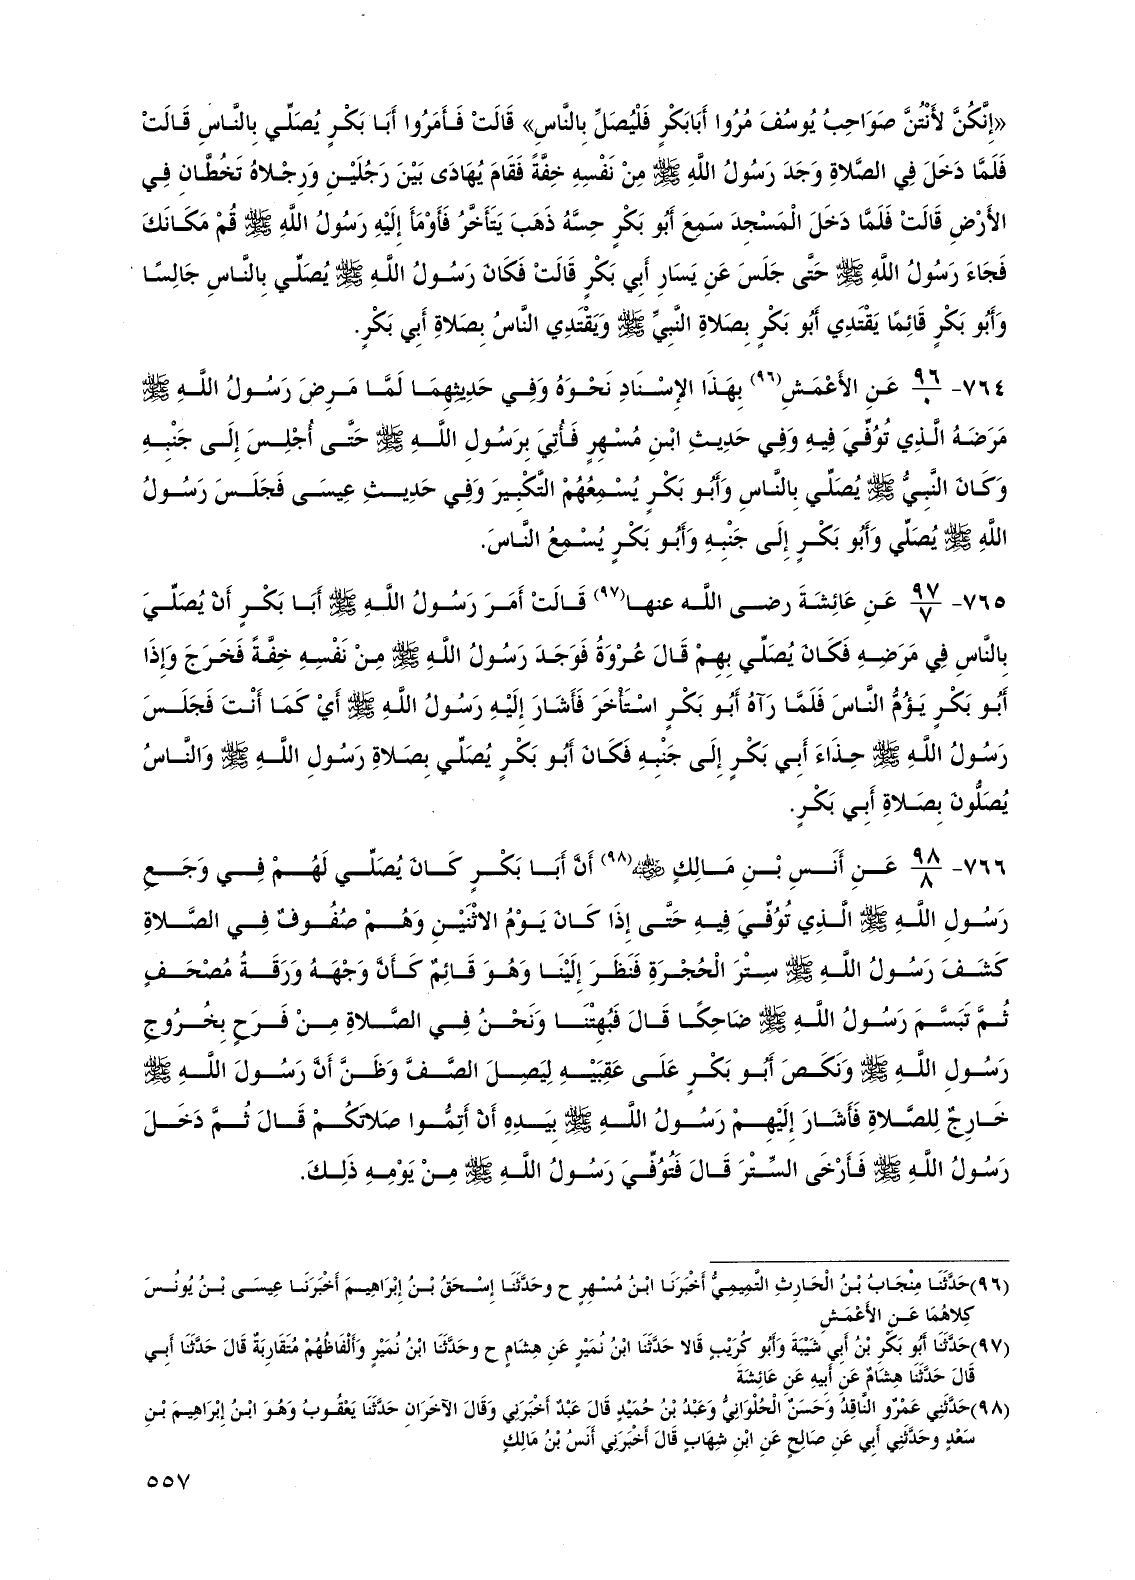 «إِنَّكُنَّ لأَنْتُنَّ صَوَاحِبُ يُوسُفَ مُرُوا أَبَابَكْرٍ فَلْيُصَلِّ بِالنَّاسِ» قَالَتْ فَأَمَرُوا أَبَا بَكْرٍ يُصَلِّي بِالنَّاسِ قَالَتْ
فَلَمَّا دَخَلَ فِي الصَّلاةِ وَجَدَ رَسُولُ اللَّهِ ﷺ مِنْ نَفْسِهِ خِفَّةً فَقَامَ يُهَادَى بَيْنَ رَجُلَيْنِ وَرِجْلاهُ تَخُطَّانِ فِي
الأَرْضِ قَالَتْ فَلَمَّا دَخَلَ الْمَسْجِدَ سَمِعَ أَبُو بَكْرٍ حِسَّهُ ذَهَبَ يَتَأَخَّرُ فَأَوْمَأَ إِلَيْهِ رَسُولُ اللَّهِ ﷺ قُمْ مَكَانَكَ
فَجَاءَ رَسُولُ اللَّهِ ﷺ حَتَّى جَلَسَ عَنْ يَسَارِ أَبِي بَكْرٍ قَالَتْ فَكَانَ رَسُولُ اللَّهِ ﷺ يُصَلِّي بِالنَّاسِ جَالِسًا
وَأَبُو بَكْرٍ قَائِمًا يَقْتَدِي أَبُو بَكْرٍ بِصَلاةِ النَّبِيِّ ﷺ وَيَقْتَدِي النَّاسُ بِصَلاةِ أَبِي بَكْرٍ.
٧٦٤- ٩٦/٠ عَنِ الأَعْمَشِ(٩٦) بِهَذَا الإِسْنَادِ نَحْوَهُ وَفِي حَدِيثِهِمَا لَمَّا مَرِضَ رَسُولُ اللَّهِ ﷺ
مَرَضَهُ الَّذِي تُوُفِّيَ فِيهِ وَفِي حَدِيثِ ابْنِ مُسْهِرٍ فَأُتِيَ بِرَسُولِ اللَّهِ ﷺ حَتَّى أُجْلِسَ إِلَى جَنْبِهِ
وَكَانَ النَّبِيُّ ﷺ يُصَلِّي بِالنَّاسِ وَأَبُو بَكْرٍ يُسْمِعُهُمْ التَّكْبِيرَ وَفِي حَدِيثِ عِيسَى فَجَلَسَ رَسُولُ
اللَّهِ ﷺ يُصَلِّي وَأَبُو بَكْرٍ إِلَى جَنْبِهِ وَأَبُو بَكْرٍ يُسْمِعُ النَّاسَ.
٧٦٥- ٩٧/٧ عَنِ عَائِشَةَ رضى الله عنها(٩٧) قَالَتْ أَمَرَ رَسُولُ اللَّهِ ﷺ أَبَا بَكْرٍ أَنْ يُصَلِّيَ
بِالنَّاسِ فِي مَرَضِهِ فَكَانَ يُصَلِّي بِهِمْ قَالَ عُرْوَةُ فَوَجَدَ رَسُولُ اللَّهِ ﷺ مِنْ نَفْسِهِ خِفَّةً فَخَرَجَ وَإِذَا
أَبُو بَكْرٍ يَؤُمُّ النَّاسَ فَلَمَّا رَآهُ أَبُو بَكْرٍ اسْتَأْخَرَ فَأَشَارَ إِلَيْهِ رَسُولُ اللَّهِ ﷺ أَيْ كَمَا أَنْتَ فَجَلَسَ
رَسُولُ اللَّهِ ﷺ حِذَاءَ أَبِي بَكْرٍ إِلَى جَنْبِهِ فَكَانَ أَبُو بَكْرٍ يُصَلِّي بِصَلاةِ رَسُولِ اللَّهِ ﷺ وَالنَّاسُ
يُصَلُّونَ بِصَلاةِ أَبِي بَكْرٍ.
٧٦٦- ٩٨/٨ عَنِ أَنَسِ بْنِ مَالِكٍ ﵁(٩٨) أَنَّ أَبَا بَكْرٍ كَانَ يُصَلِّي لَهُمْ فِي وَجَعِ
رَسُولِ اللَّهِ ﷺ الَّذِي تُوُفِّيَ فِيهِ حَتَّى إِذَا كَانَ يَوْمُ الاثْنَيْنِ وَهُمْ صُفُوفٌ فِي الصَّلاةِ
كَشَفَ رَسُولُ اللَّهِ ﷺ سِتْرَ الْحُجْرَةِ فَنَظَرَ إِلَيْنَا وَهُوَ قَائِمٌ كَأَنَّ وَجْهَهُ وَرَقَةُ مُصْحَفٍ
ثُمَّ تَبَسَّمَ رَسُولُ اللَّهِ ﷺ ضَاحِكًا قَالَ فَبُهِتْنَا وَنَحْنُ فِي الصَّلاةِ مِنْ فَرَحٍ بِخُرُوجِ
رَسُولِ اللَّهِ ﷺ وَنَكَصَ أَبُو بَكْرٍ عَلَى عَقِبَيْهِ لِيَصِلَ الصَّفَّ وَظَنَّ أَنَّ رَسُولَ اللَّهِ ﷺ
خَارِجٌ لِلصَّلاةِ فَأَشَارَ إِلَيْهِمْ رَسُولُ اللَّهِ ﷺ بِيَدِهِ أَنْ أَتِمُّوا صَلاتَكُمْ قَالَ ثُمَّ دَخَلَ
رَسُولُ اللَّهِ ﷺ فَأَرْخَى السِّتْرَ قَالَ فَتُوُفِّيَ رَسُولُ اللَّهِ ﷺ مِنْ يَوْمِهِ ذَلِكَ.
(٩٦)حَدَّثَنَا مِنْجَابُ بْنُ الْحَارِثِ التَّمِيمِيُّ أَخْبَرَنَا ابْنُ مُسْهِرٍ ح وحَدَّثَنَا إِسْحَقُ بْنُ إِبْرَاهِيمَ أَخْبَرَنَا عِيسَى بْنُ يُونُسَ
كِلاهُمَا عَنِ الأَعْمَشِ
(٩٧)حَدَّثَنَا أَبُو بَكْرِ بْنُ أَبِي شَيْبَةَ وَأَبُو كُرَيْبٍ قَالا حَدَّثَنَا ابْنُ نُمَيْرٍ عَنِ هِشَامٍ ح وحَدَّثَنَا ابْنُ نُمَيْرٍ وَأَلْفَاظُهُمْ مُتَقَارِبَةٌ قَالَ حَدَّثَنَا أَبِي
قَالَ حَدَّثَنَا هِشَامٌ عَنِ أَبِيهِ عَنِ عَائِشَةَ
(٩٨)حَدَّثَنِي عَمْرٌو النَّاقِدُ وَحَسَنٌ الْحُلْوَانِيُّ وَعَبْدُ بْنُ حُمَيْدٍ قَالَ عَبْدٌ أَخْبَرَنِي وَقَالَ الآخَرَانِ حَدَّثَنَا يَعْقُوبُ وَهُوَ ابْنُ إِبْرَاهِيمَ بْنِ
سَعْدٍ وحَدَّثَنِي أَبِي عَنِ صَالِحٍ عَنِ ابْنِ شِهَابٍ قَالَ أَخْبَرَنِي أَنَسُ بْنُ مَالِكٍ
٥٥٧